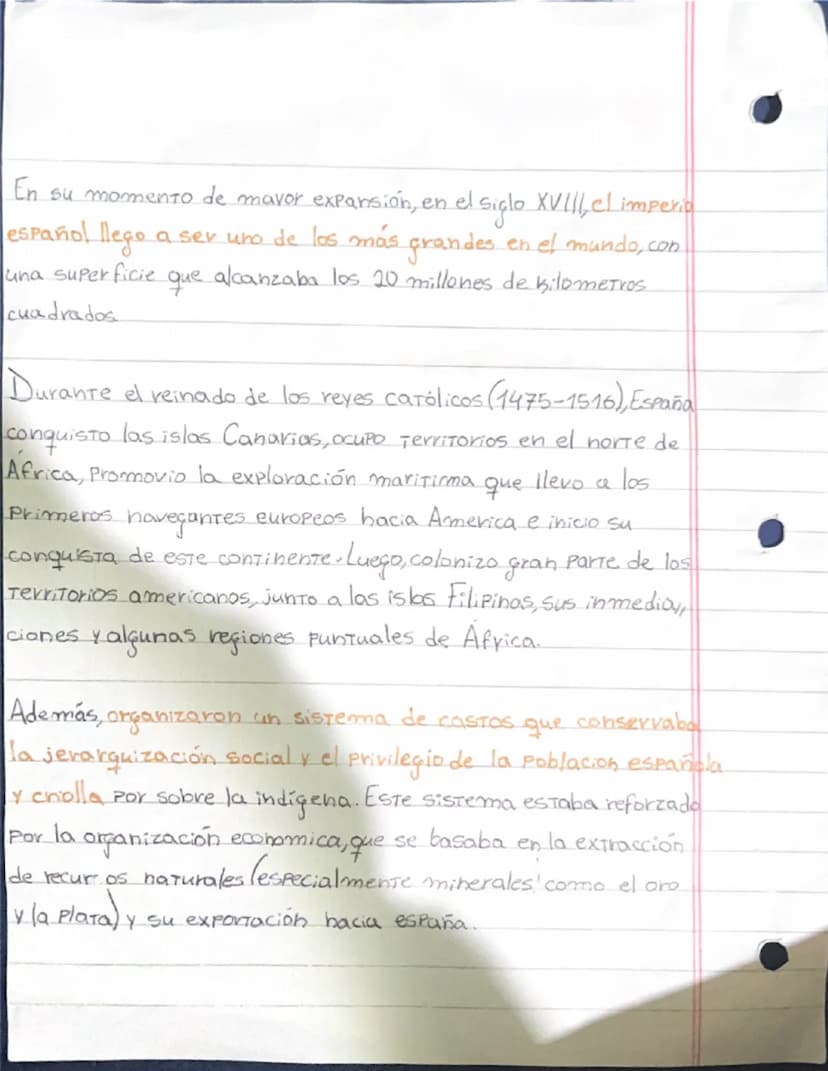 En su momento de mavor expansión, en el siglo XVIII, el imperio
español llego a ser uno de los más grandes en el mundo, con
una superficie que alcanzaba los 20 millones de kilometros
cuadrados
Durante el reinado de los reyes católicos (1475-1516), España
conquisto las islas Canarias, ocupo territorios en el norte de
África, promovio la exploración maritima que llevo a los
primeros navegantes europeos hacia America e inicio su
conquista de este continente. Luego, colonizo gran parte de los
territorios americanos, junto a las islas Filipinas, sus inmedia,,
ciones y algunas regiones puntuales de África.
Además, organizaron un sistema de castas que conservaba
la jerarquización social y el privilegio de la poblacion española
y criolla por sobre la indígena. Este sistema estaba reforzado
por la organización economica, que se basaba en la extracción
de recur os naturales (especialmente minerales como el oro
y la plata) y su exportación hacia españa.